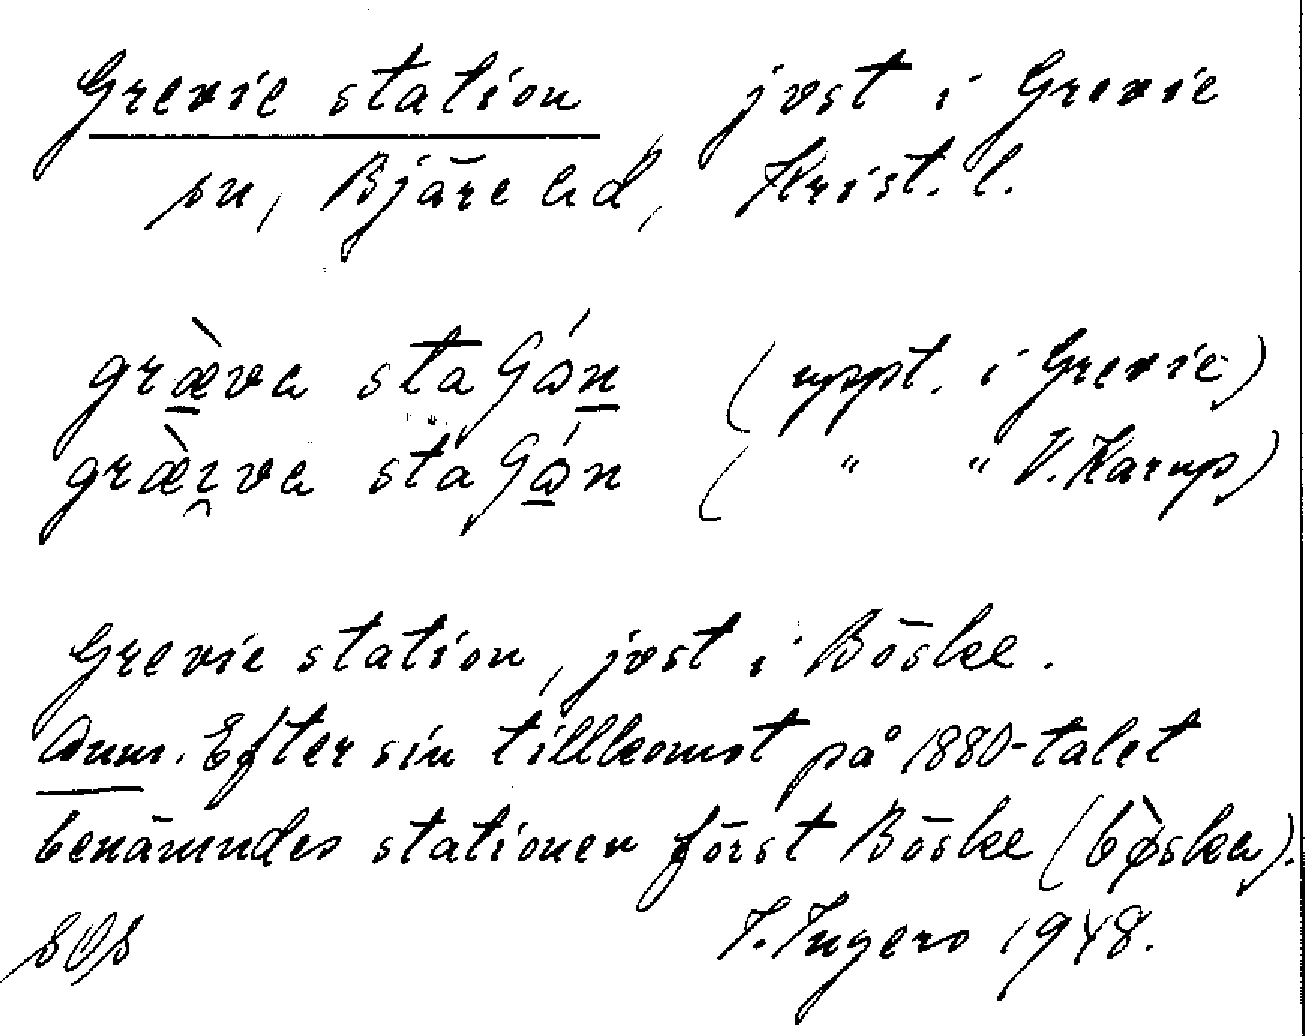 Grevie station, jvst i Grevie
sn, Bjäre hd, Krist. l.
græ̀va staʃɷ́n (uppt. i Grevie)
græ̀ɪ̯va staʃɷ́n ( " " V. Karup)
Grevie station, jvst i Böske.
Anm. Efter sin tillkomst på 1880-talet
benämndes stationen först Böske (bø̀ska).
SOS I. Ingers 1948.